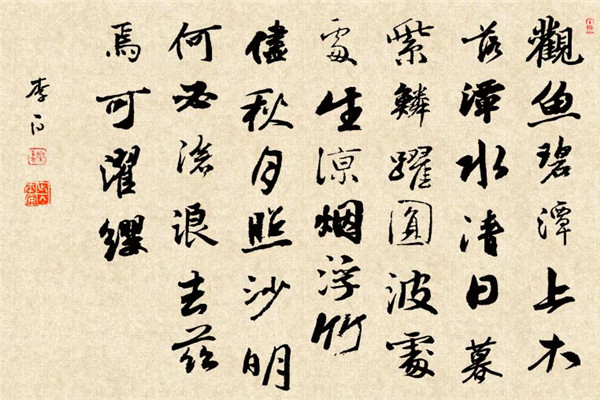 觀魚碧潭上木
落潭水清日暮
紫鱗躍圓波處
處生涼烟浮竹
儘秋月照沙明
何必滄浪去茲
焉可濯纓
李白